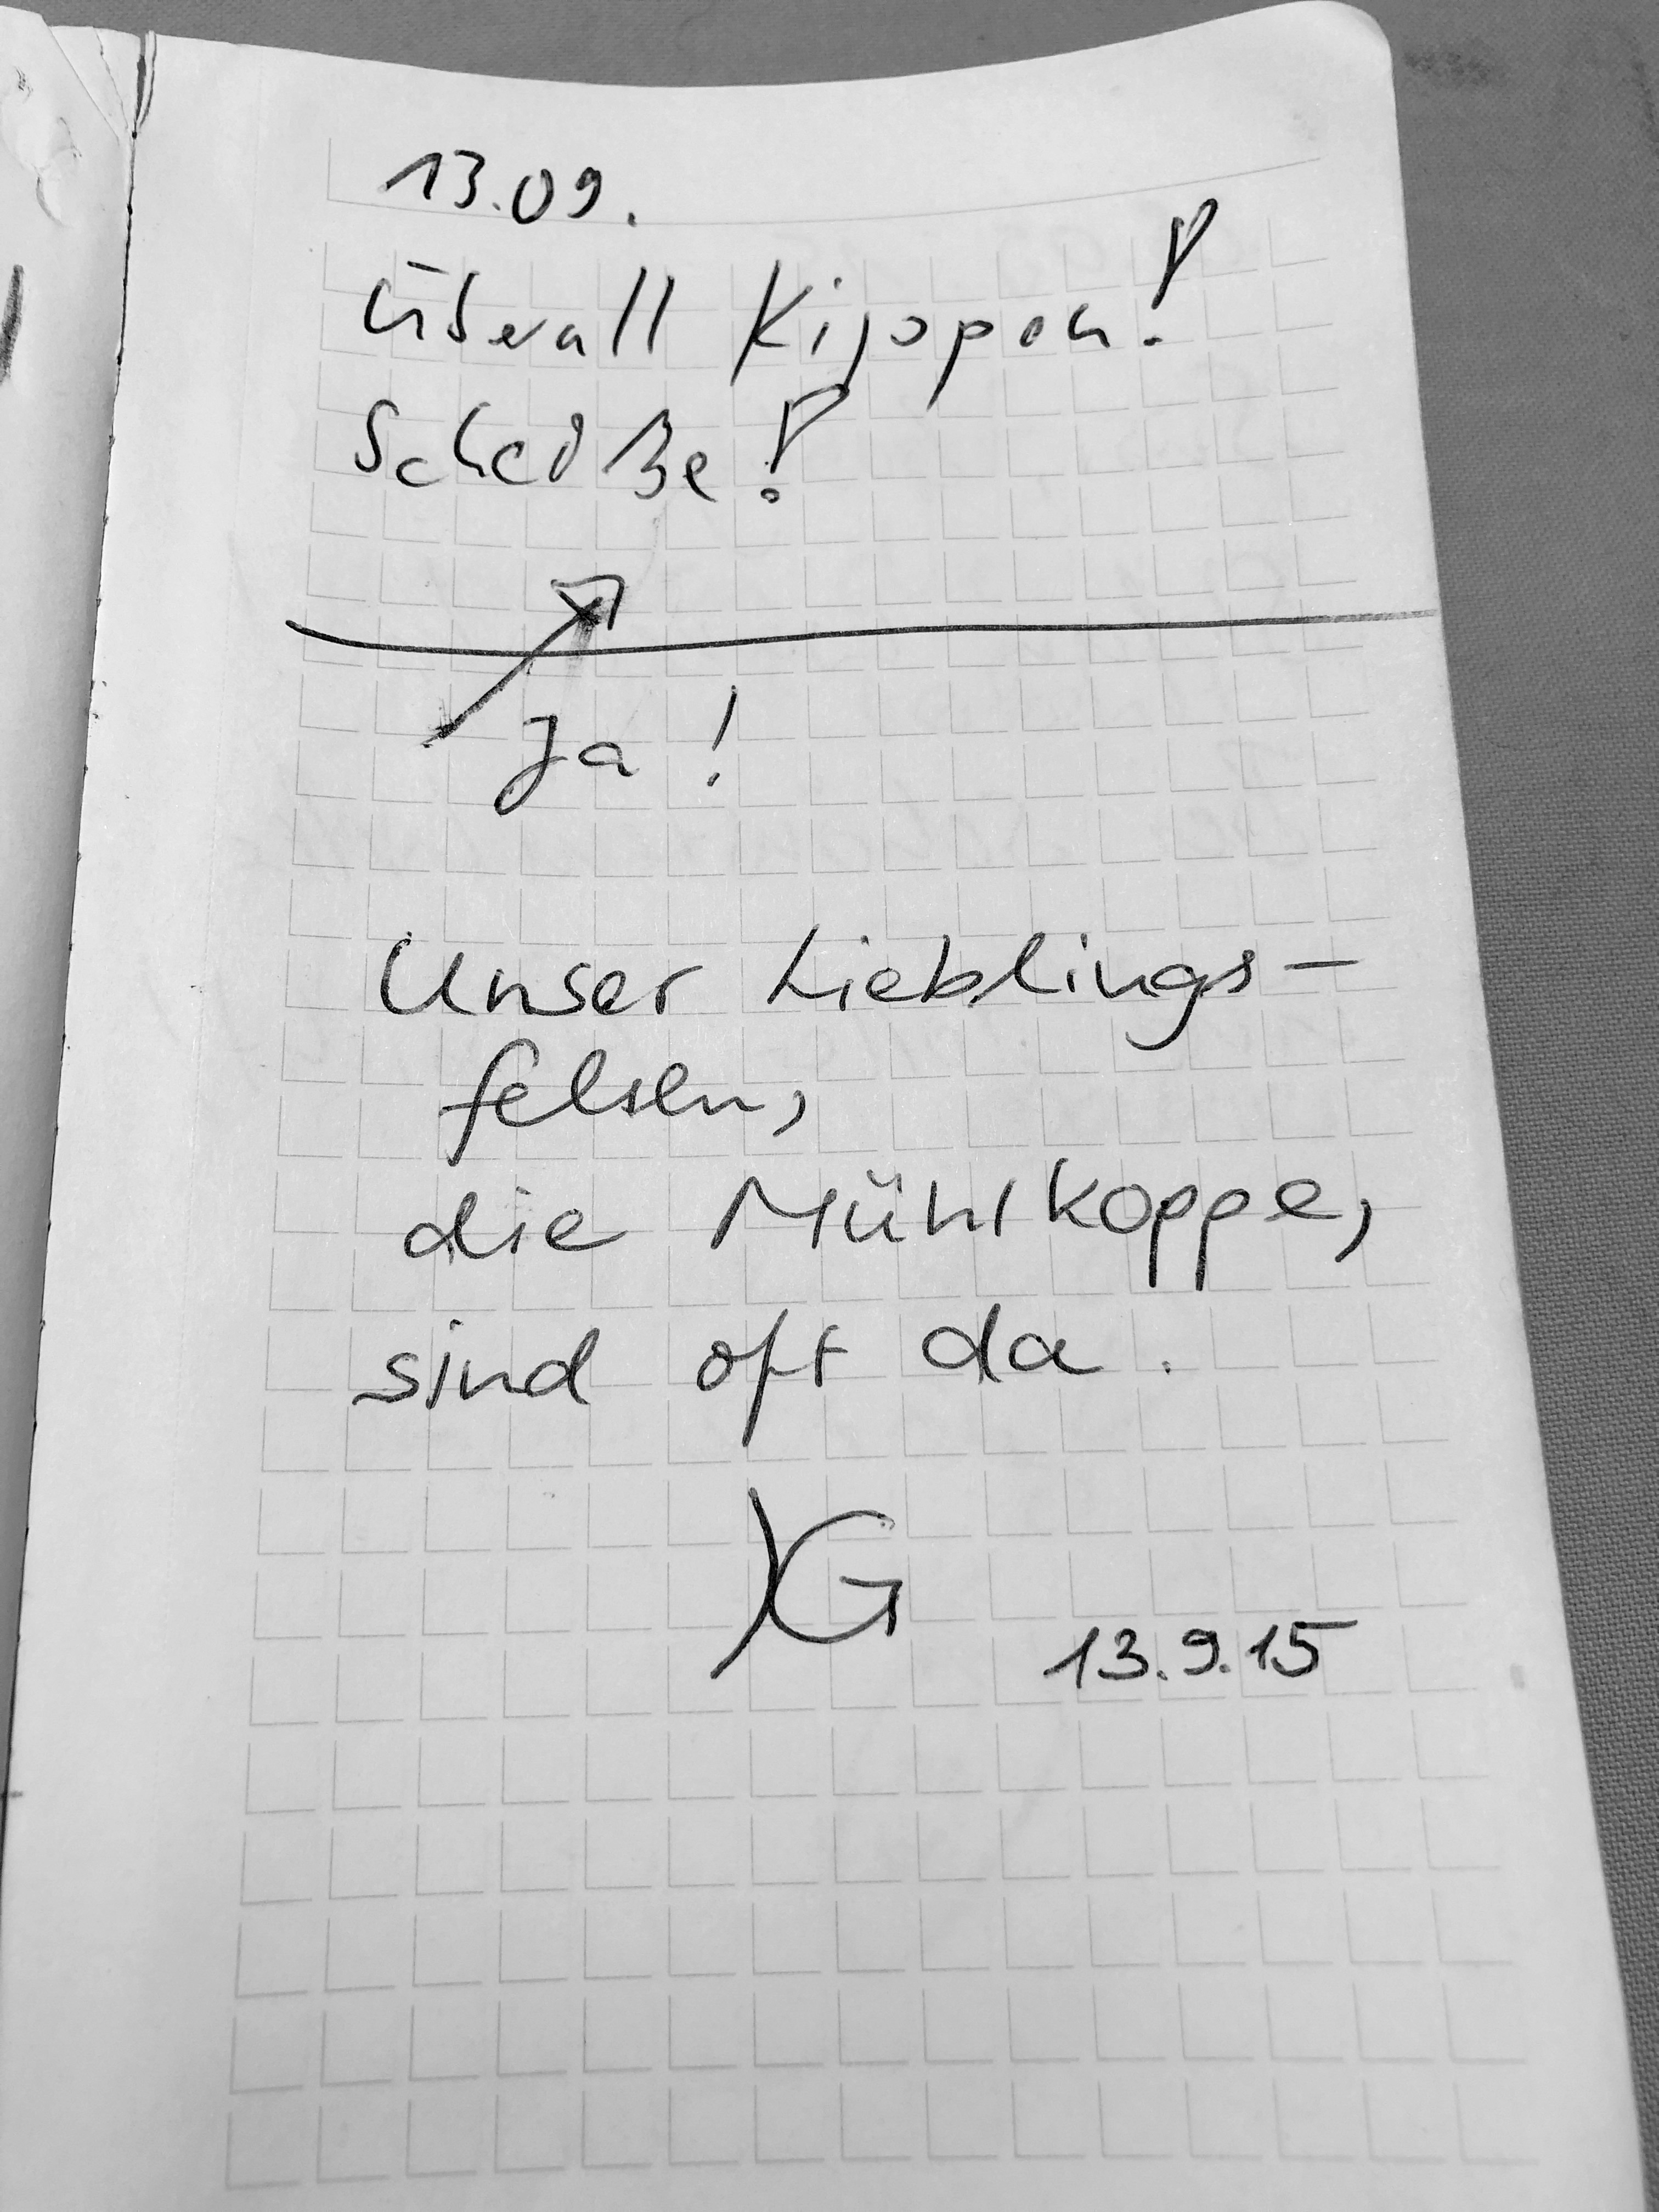 13.09.
Überall Kijopen!
Scheiße!
Ja!
Unser Lieblings-
felsen,
die Mühlkoppe,
sind oft da.
13.9.15